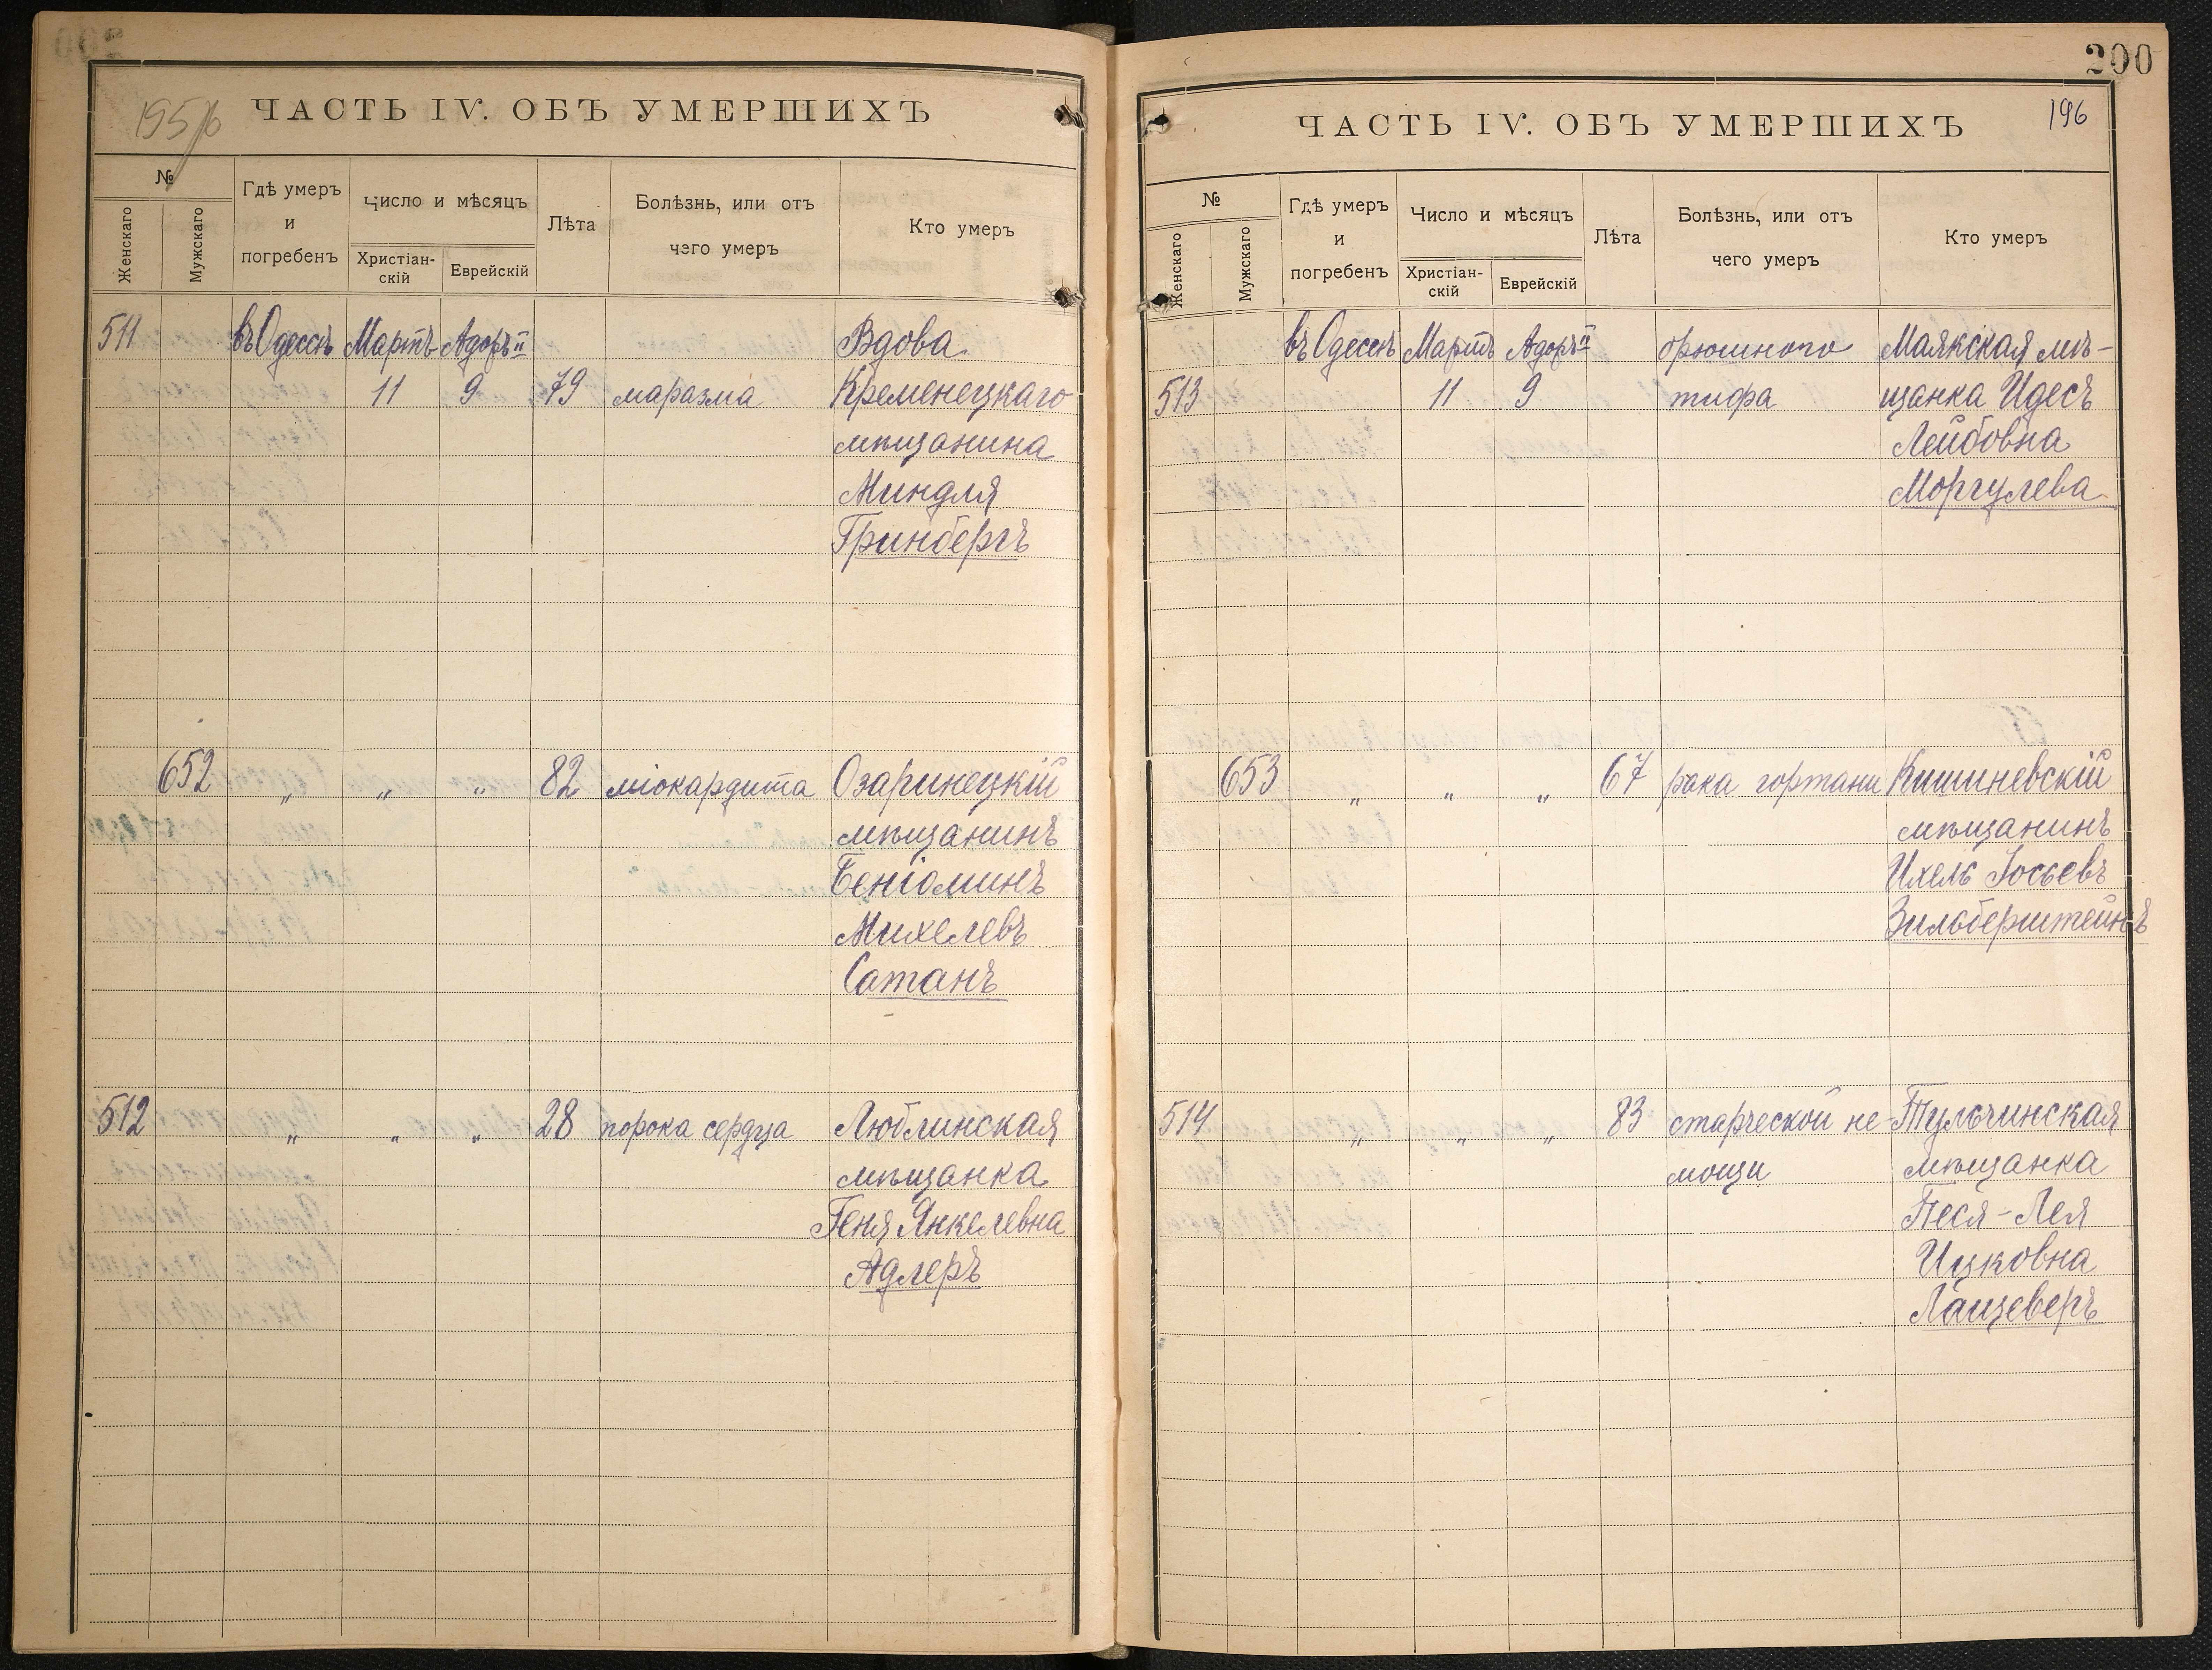 195/6
ЧАСТЬ IV. ОБЪ УМЕРШИХЪ
№
Женскаго
Мужскаго
Гдѣ умеръ
и
погребенъ
Число и мѣсяцъ
Христіан-
скій
Еврейскій
Лѣта
Болѣзнь, или отъ
чего умеръ
Кто умеръ
511 въ Одессѣ Мартъ Адоръ II Вдова
11 9 79 маразма Кременецкаго
мѣщанина
Миндля
Гринбергъ
652 „ „ „ 82 міокардита Озаринецкій
мѣщанинъ
Беніоминъ
Михелевъ
Сотанъ
512 „ „ „ 28 порока сердца Люблинская
мѣщанка
Геня Янкелевна
Адлеръ
200
196
ЧАСТЬ IV. ОБЪ УМЕРШИХЪ
№
Женскаго
Мужскаго
Гдѣ умеръ
и
погребенъ
Число и мѣсяцъ
Христіан-
скій
Еврейскій
Лѣта
Болѣзнь, или отъ
чего умеръ
Кто умеръ
въ Одессѣ Мартъ Адоръ II брюшного Маякская мѣ-
513 11 9 тифа щанка Идесъ
Лейбовна
Моргулева
653 „ „ „ 67 рака гортани Кишиневскій
мѣщанинъ
Ихель Іосьевъ
Зильберштейнъ
514 „ „ „ 83 старческой не- Тульчинская
мощи мѣщанка
Песя-Лея
Ицковна
Лащеверъ